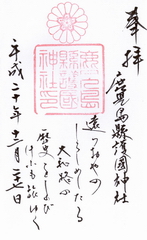 奉拝
鹿児島縣護國神社
遠つおやの
しろしめしたる
大和路の
歴史をしのび
けふも旅ゆく
平成二十年十二月 日
鹿兒島
縣護國
神社印